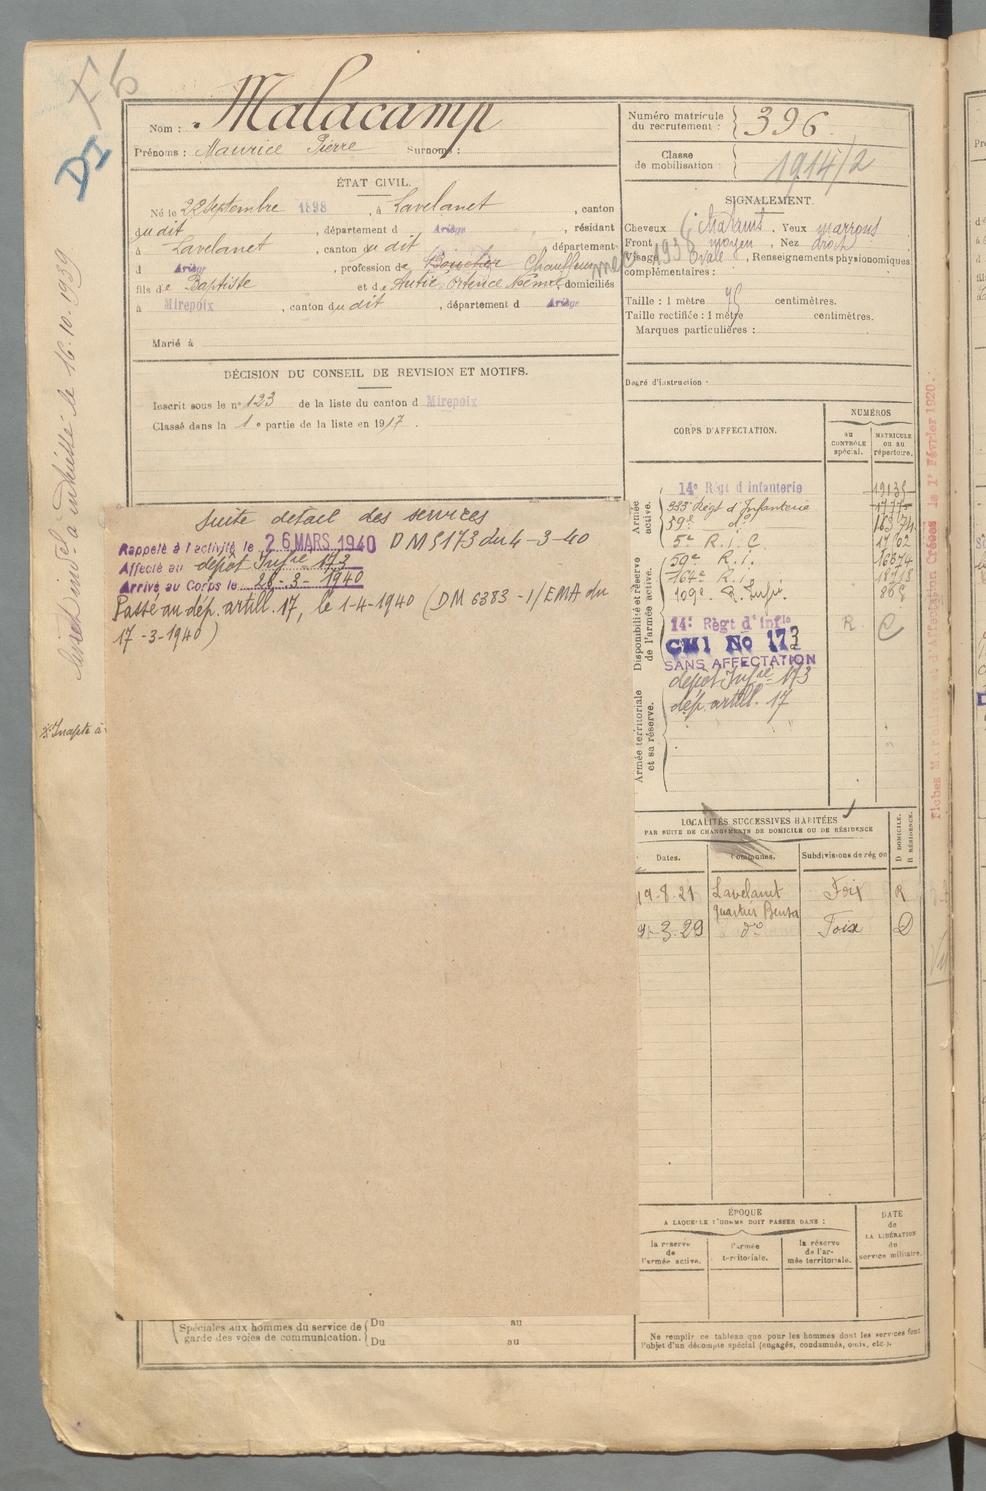 F5
DI
Nom : Malacamp
Prénoms : Maurice Pierre Surnoms :
Numéro matricule du recrutement : 396
Classe de mobilisation : 1914/2
ÉTAT CIVIL.
Né le 22 septembre 1898, à Lavelanet, canton
du dit, département d Ariège, résidant
à Lavelanet, canton du dit, département
d Ariège, profession de Boucher Chauffeur
fils de Baptiste et de Autié Ortence Noémie, domiciliés
à Mirepoix, canton du dit, département d Ariège
Marié à
SIGNALEMENT.
Cheveux châtains, Yeux marrons
Front moyen, Nez droit
Visage Ovale, Renseignements physionomiques
complémentaires :
Taille : 1 mètre centimètres.
Taille rectifiée : 1 mètre centimètres.
Marques particulières :
Degré d'instruction :
DÉCISION DU CONSEIL DE REVISION ET MOTIFS.
Inscrit sous le n° 123 de la liste du canton d Mirepoix
Classé dans la 1e partie de la liste en 1917.
suite détail des services
Rappelé à l'activité le 26 MARS 1940 DM 5173 du 4-3-40
Affecté au dépôt Infie 173
Arrivé au Corps le 28-3-1940
Passé au dép. artill. 17, le 1-4-1940 (DM 6383 - 1/EMA du
17-3-1940)
le 16.10.1939
Inapte à
CORPS D'AFFECTATION.
NUMÉROS
au CONTRÔLE spécial.
MATRICULE ou au répertoire.
Armée active.
14e Régt d Infanterie
Régt d'Infanterie
59e do
5e R.I.C.
Disponibilité et réserve de l'armée active.
59e R.I.
164e R.I.
109e R. Infie
14e Règt d'Infie R. C
CMI No 173
SANS AFFECTATION
dépôt Infie 173
dép. artill. 17
Armée territoriale et sa réserve.
LOCALITÉS SUCCESSIVES HABITÉES
PAR SUITE DE CHANGEMENTS DE DOMICILE OU DE RÉSIDENCE
Dates. Communes. Subdivisions de région D DOMICILE. R RÉSIDENCE.
19-8-21 Lavelanet Foix R
quartier
3.29 do Foix D
ÉPOQUE
A LAQUELLE L'HOMME DOIT PASSER DANS :
la réserve de l'armée active.
l'armée territoriale.
la réserve de l'armée territoriale.
DATE de LA LIBÉRATION du service militaire.
Spéciales aux hommes du service de garde des voies de communication.
Du au
Du au
Ne remplir ce tableau que pour les hommes dont les services font
l'objet d'un décompte spécial (engagés, condamnés, omis, etc.).
d'Affectation Créées le 1r Février 1920.